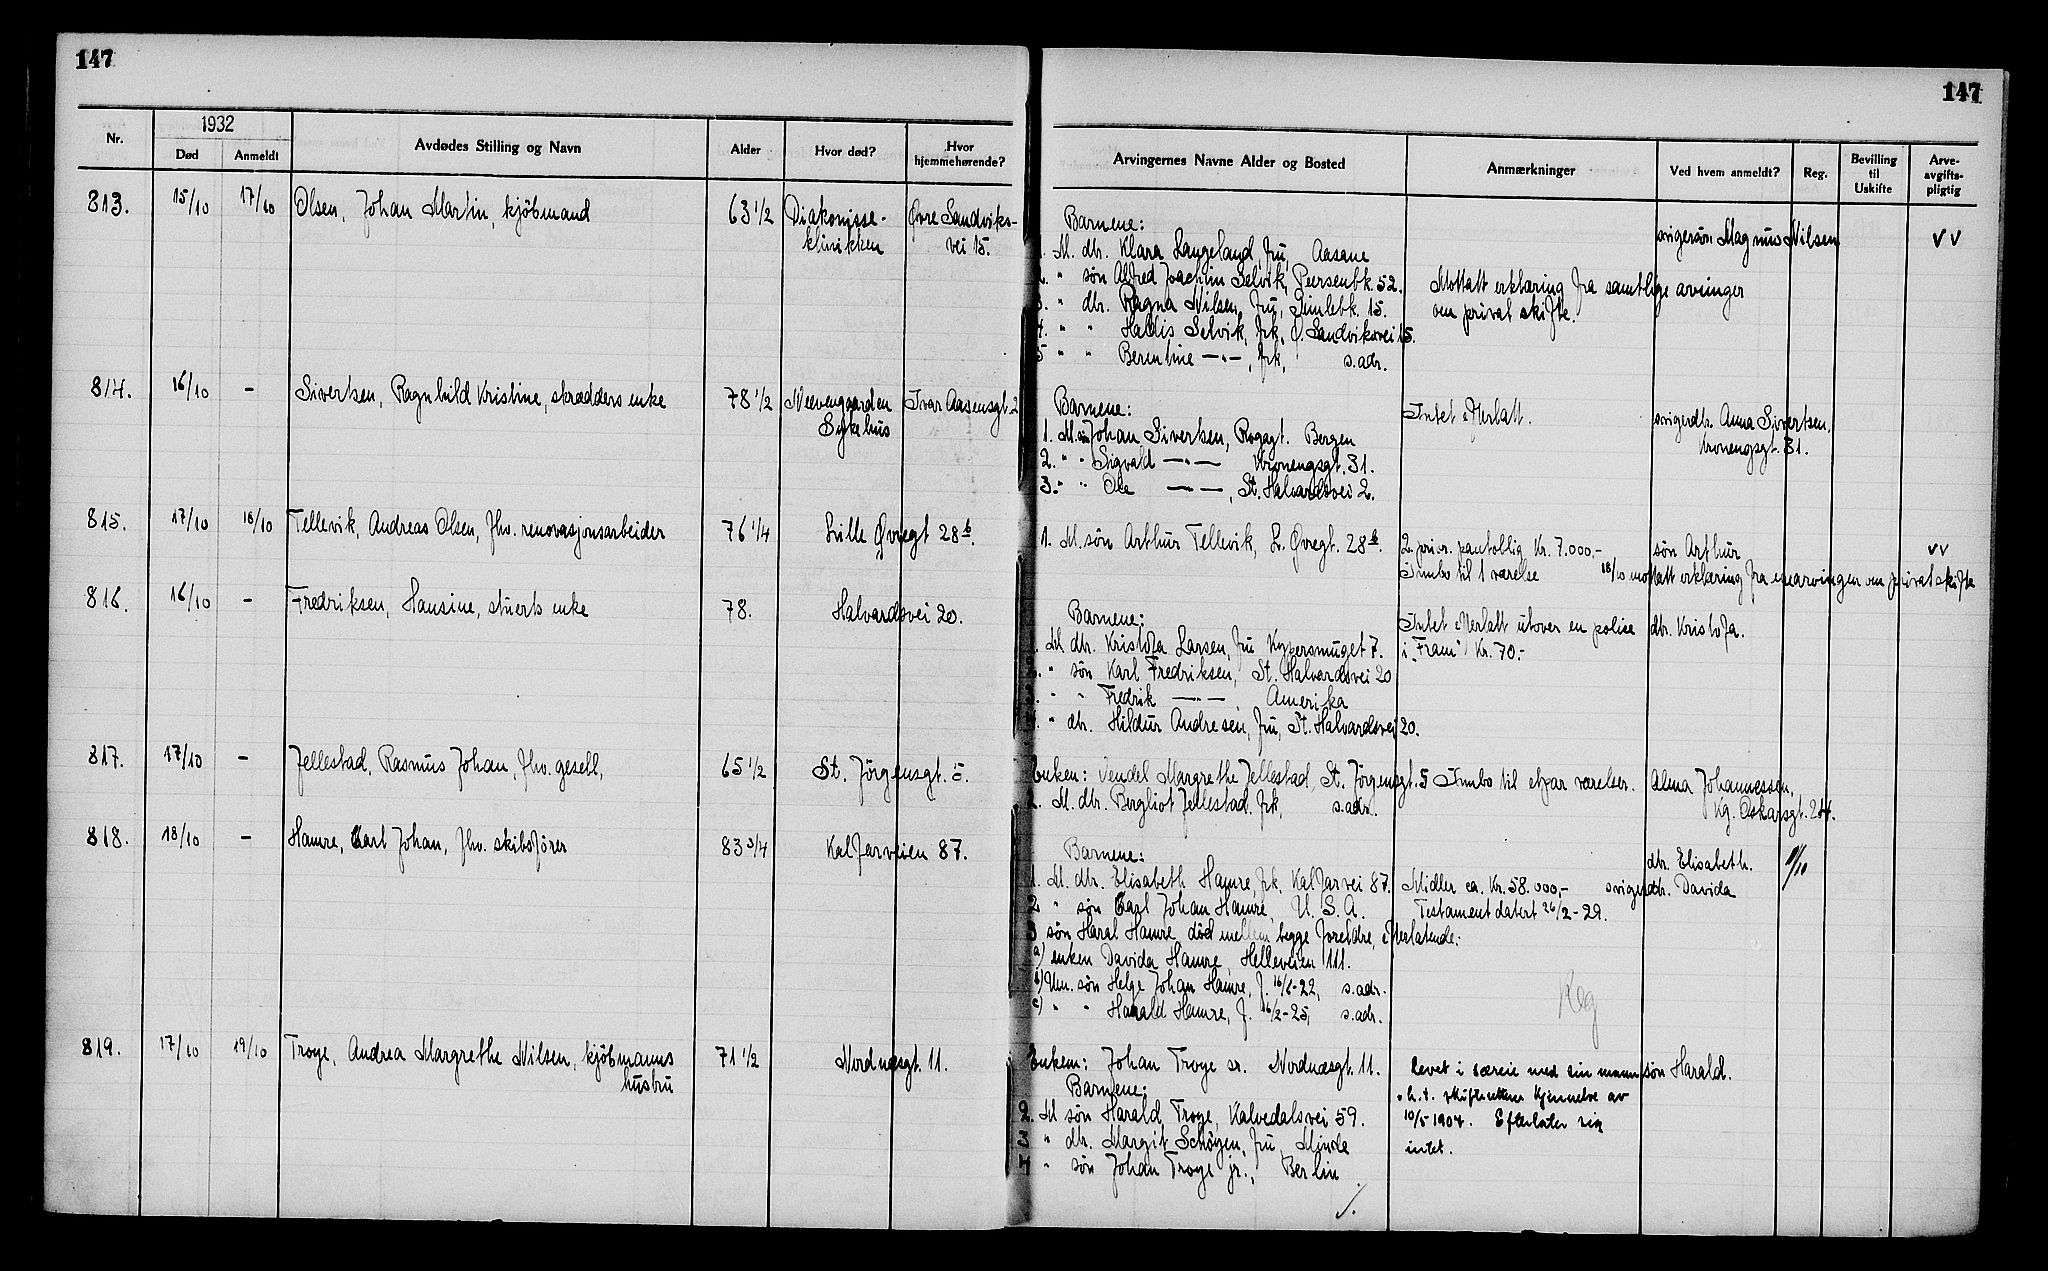 147
147
Nr.
1932
Død
Anmeldt
Avdødes Stilling og Navn
Alder
Hvor død?
Hvor hjemmehørende?
Arvingernes Navne Alder og Bosted
Anmærkninger
Ved hvem anmeldt?
Reg.
Bevilling til Uskifte
Arve-avgifts-pligtig
813. 15/10 17/10 Olsen, Johan Martin, kjöbmand 63 1/2 Diakonisse- Øvre Sandviks-
klinikken vei 15.
Barnene:
M. dtr. Klara Langeland, fru, Aasane
" søn Alfred Joachim Selvik, Peersenbk. 52.
" dtr. Ragna Nilsen, fru, 15.
4. " " Haldis Selvik, frk, Ø. Sandviksvei 15.
5 " " Berentine —"—, frk, s. adr.
Mottatt erklæring fra samtlige arvinger
om privat skifte.
svigersøn Magnus Nilsen
VV
814. 16/10 - Sivertsen, Ragnhild Kristine, skrædders enke 78 1/2 Neevengaarden Ivar Aasensgt. 2
Sykehus
Barnene:
1. M. søn Johan Sivertsen, Bergen
2. " " Sigvald —"— Kronengsgt. 31.
3. " " Ole —"—, St. Halvardsvei 2.
Intet efterlatt.
svigerdtr. Anna Sivertsen,
Kronengsgt. 31.
815. 17/10 18/10 Tellevik, Andreas Olsen, fhv. renovasjonsarbeider 76 1/4 Lille Øvregt 28 b.
1. M. søn Arthur Tellevik, L. Øvregt. 28 b.
2. prior. pantoblig Kr. 7.000,-
Innbo til 1 værelse 18/10 mottatt erklæring fra enearvingen om privat skifte
søn Arthur
VV
816. 16/10 - Fredriksen, Hansine, stuerts enke 78. Halvardsvei 20.
Barnene:
M dtr. Kristofa Larsen, fru 7.
" søn Karl Fredriksen, St. Halvardsvei 20
" " Fredrik —"— Amerika
" dtr. Hildur Andresen, fru, St. Halvardsvei 20.
Intet efterlatt utover en police
i "Fram" Kr. 70.-
dtr. Kristofa.
817. 17/10 - Jellestad, Rasmus Johan, fhv. gesell, 65 1/2 St. Jörgensgt. 5.
Enken: Vendel Margrethe Jellestad, St. Jörgensgt. 5
2. M. dtr. Bergliot Jellestad. frk, s. adr.
Innbo til etpar værelser.
Alma Johannessen,
Kg. Oskarsgt. 24.
818. 18/10 - Hamre, Carl Johan, fhv. skibsfører 83 3/4 Kalfarveien 87.
Barnene:
1. M. dtr. Elisabeth Hamre, frk, Kalfarvei 87.
2 " søn Carl Johan Hamre, U. S. A.
3 søn Haral Hamre død mellem begge foreldre, efterlatende:
a) enken Davida Hamre, Helleveien 111.
b) Um. søn Helge Johan Hamre, f. 16/6-22, s. adr.
c) " " Harald Hamre, f. 16/2-25, s. adr.
Midler ca. Kr. 58.000,-
Testament datert 26/2-29.
Reg
dtr. Elisabeth.
svigerdtr. Davida
819. 17/10 19/10 Troye, Andrea Margrethe Nilsen, kjöbmanns 71 1/2 Nordnæsgt. 11.
hustru
Enkem: Johan Troye sr. Nordnæsgt. 11.
Barnene:
2. M søn Harald Troye, Kalvedalsvei 59.
3 " dtr. Margit fru, Minde
4 " søn Johan Troye jr., Berlin
Levet i særeie med sin mann
h.t. skifterettens kjennelse av
10/5 1904. Efterlater sig
intet.
søn Harald.